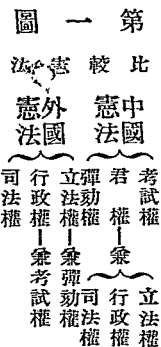 第一圖
比較憲法
中國憲法
考試權
君權——兼
立法權
行政權
司法權
彈劾權
外國憲法
立法權——兼彈劾權
行政權——兼考試權
司法權